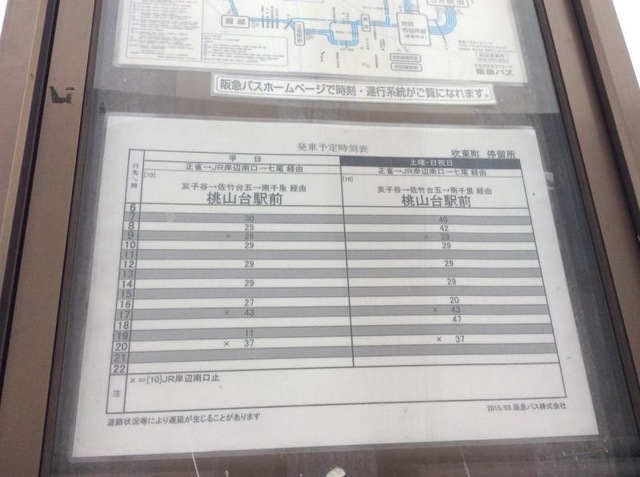 阪急バス
阪急バスホームページで時刻・運行系統がご覧になれます。
発車予定時刻表
吹東町 停留所
行先/時 平 日 土曜・日祝日
正雀→JR岸辺南口→七尾 経由 正雀→JR岸辺南口→七尾 経由
[10] [10]
亥子谷→佐竹台五→南千里 経由 亥子谷→佐竹台五→南千里 経由
桃山台駅前 桃山台駅前
6
7 30 40
8 25 42
9 × 28 × 28
10 29 29
11
12 29 29
13
14 29 29
15
16 27 20
17 × 43 × 43
18 47
19 11
20 × 37 × 37
21
22
注 ×=[10]JR岸辺南口止
道路状況等により遅延が生じることがあります
2015/03 阪急バス株式会社